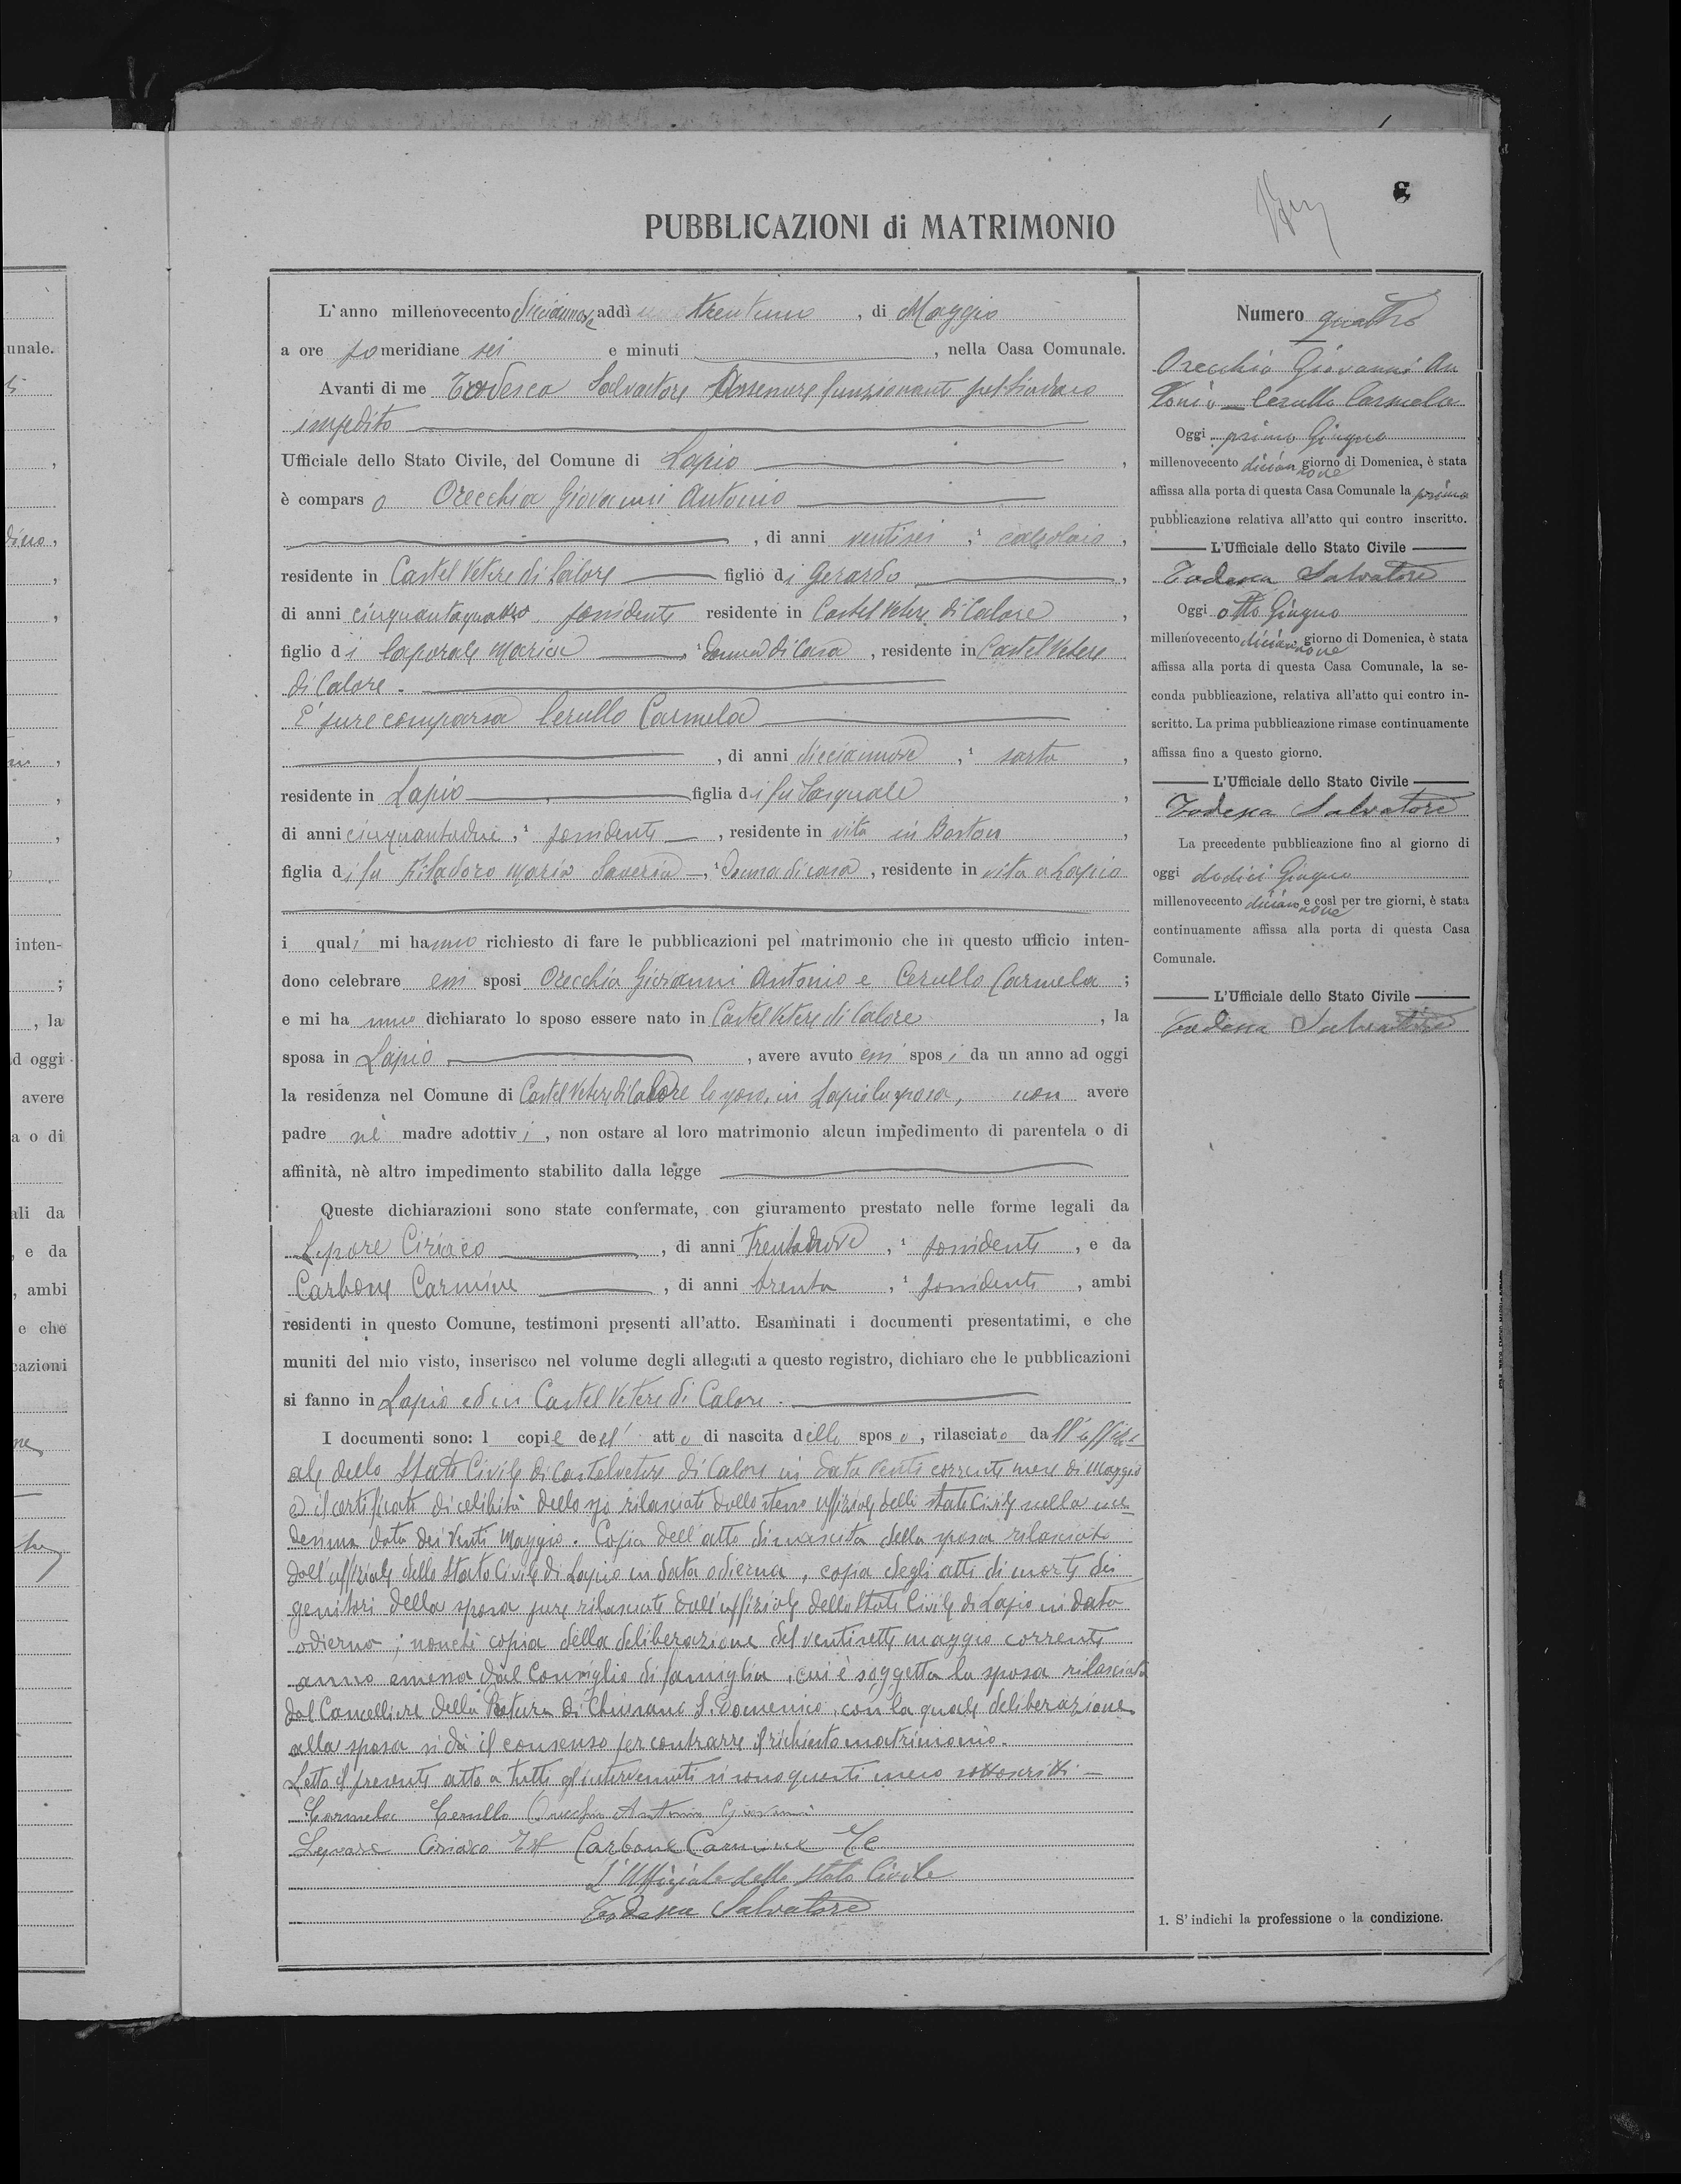 PUBBLICAZIONI di MATRIMONIO
L'anno millenovecento diciannove addì trentuno, di Maggio
a ore pomeridiane sei e minuti, nella Casa Comunale.
Avanti di me Todesca Salvatore Assessore funzionante pel Sindaco
impedito
Ufficiale dello Stato Civile, del Comune di Lapio,
è comparso Orecchio Giovanni Antonio
, di anni ventisei, ¹ calzolaio,
residente in Castel Vetere di Calore figlio di Gerardo,
di anni cinquantaquattro possidente residente in Castel Vetere di Calore,
figlio di Caporale Maria, ¹ Donna di Casa, residente in Castel Vetere
di Calore.
E' pure comparsa Cerullo Carmela
, di anni diecinnove, ¹ sarta,
residente in Lapio figlia di fu Pasquale,
di anni cinquantadue, ¹ possidente, residente in vita in Boston,
figlia di fu Maria Saveria, ¹ Donna di casa, residente in vita a Lapio
i quali mi hanno richiesto di fare le pubblicazioni pel matrimonio che in questo ufficio inten-
dono celebrare essi sposi Orecchio Giovanni Antonio e Cerullo Carmela;
e mi hanno dichiarato lo sposo essere nato in Castel Vetere di Calore, la
sposa in Lapio, avere avuto essi sposi da un anno ad oggi
la residenza nel Comune di Castel Vetere di Calore lo sposo, in Lapio la sposa, non avere
padre nè madre adottivi, non ostare al loro matrimonio alcun impedimento di parentela o di
affinità, nè altro impedimento stabilito dalla legge
Queste dichiarazioni sono state confermate, con giuramento prestato nelle forme legali da
Lepore Ciriaco, di anni, ¹ possidente, e da
Carbone Carmine, di anni trenta, ¹ possidente, ambi
residenti in questo Comune, testimoni presenti all'atto. Esaminati i documenti presentatimi, e che
muniti del mio visto, inserisco nel volume degli allegati a questo registro, dichiaro che le pubblicazioni
si fanno in Lapio ed in Castel Vetere di Calore.
I documenti sono: 1 copie dell' atto di nascita dello sposo, rilasciato dall'uffizi-
ale dello Stato Civile di Castelvetere di Calore in data venti corrente mese di Maggio
ed il certificato di celibità dello sposo rilasciato dallo stesso uffiziale dello stato Civile nella me-
desima data dei venti Maggio. Copia dell'atto di nascita della sposa rilasciato
dall'uffiziale dello Stato Civile di Lapio in data odierna, copia degli atti di morte dei
genitori della sposa pure rilasciati dall'uffiziale dello Stato Civile di Lapio in data
odierna; nonchè copia della deliberazione del ventisette maggio corrente
anno emessa dal Consiglio di famiglia, cui è soggetta la sposa rilasciata
dal Cancelliere della Pretura di Chiusano S. Domenico, con la quale deliberazione
alla sposa si dà il consenso per contrarre il richiesto matrimonio.
Letto il presente atto a tutti gl'intervenuti si sono questi meco sottoscritti
Carmela Cerullo Orecchio Antonio Giovanni
Lepore Ciriaco Carbone Carmine
L'Uffiziale dello Stato Civile
Todesca Salvatore
Numero quattro
Orecchio Giovanni An
tonio - Cerullo Carmela
Oggi primo Giugno
millenovecento diciannove giorno di Domenica, è stata
affissa alla porta di questa Casa Comunale la prima
pubblicazione relativa all'atto qui contro inscritto.
L'Ufficiale dello Stato Civile
Todesca Salvatore
Oggi otto Giugno
millenovecento diciannove giorno di Domenica, è stata
affissa alla porta di questa Casa Comunale, la se-
conda pubblicazione, relativa all'atto qui contro in-
scritto. La prima pubblicazione rimase continuamente
affissa fino a questo giorno.
L'Ufficiale dello Stato Civile
Todesca Salvatore
La precedente pubblicazione fino al giorno di
oggi dodici Giugno
millenovecento diciannove e così per tre giorni, è stata
continuamente affissa alla porta di questa Casa
Comunale.
L'Ufficiale dello Stato Civile
Todesca Salvatore
1. S'indichi la professione o la condizione.